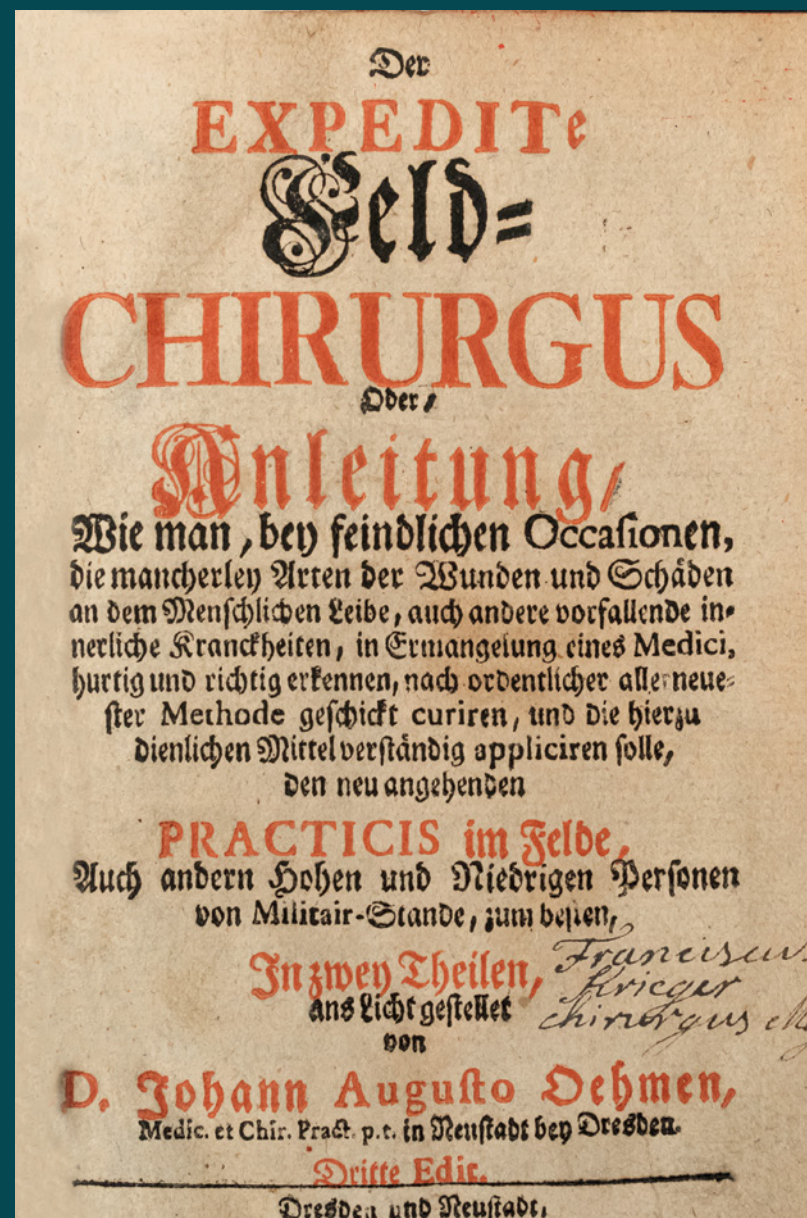 Der
EXPEDITe
Feld=
CHIRURGUS
Oder /
Anleitung /
Wie man , bey feindlichen Occasionen,
die mancherley Arten der Wunden und Schäden
an dem Menschlichen Leibe, auch andere vorfallende in-
nerliche Kranckheiten, in Ermangelung eines Medici,
hurtig und richtig erkennen, nach ordentlicher allerneue-
ster Methode geschickt curiren, und die hierzu
dienlichen Mittel verständig appliciren solle,
den neu angehenden
PRACTICIS im Felde,
Auch andern Hohen und Niedrigen Personen
von Militair-Stande, zum besten,
In zwey Theilen,
ans Licht gestellet
von
Franciscus
Krieger
chirurgus
D. Johann Augusto Oehmen,
Medic. et Chir. Pract. p. t. in Neustadt bey Dresden.
Dritte Edit.
Dresden und Neustadt,